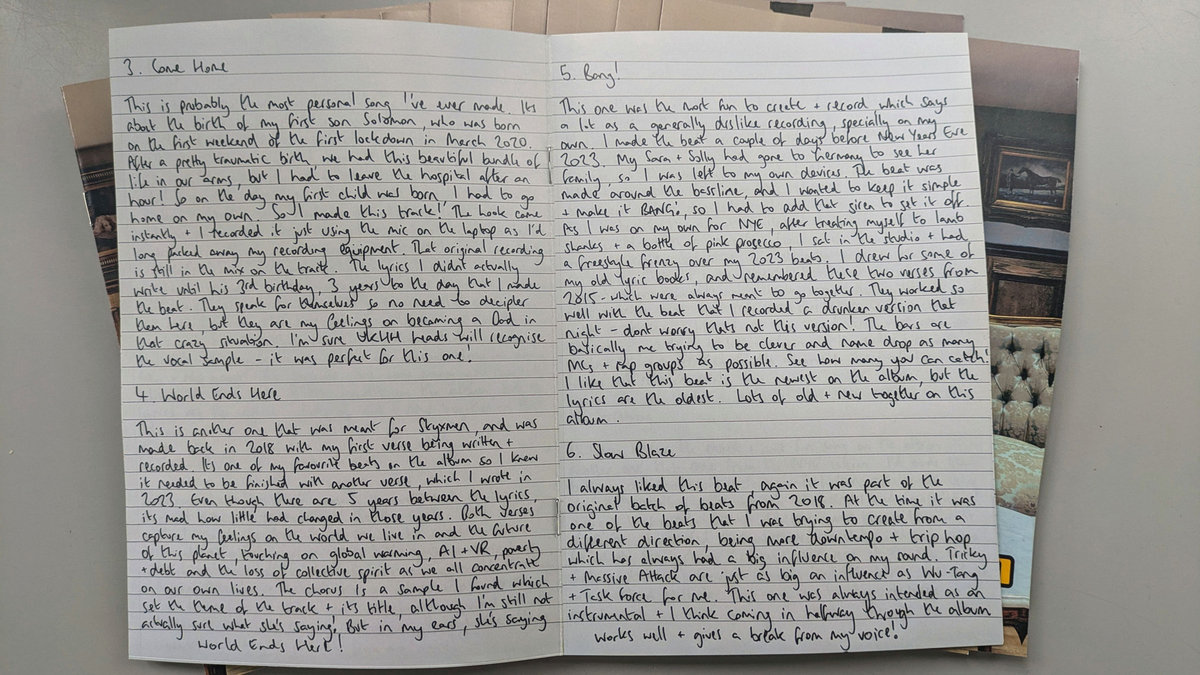 3. Come Home
This is probably the most personal song I've ever made. Its
about the birth of my first son Solomon, who was born
on the first weekend of the first lockdown in March 2020.
After a pretty traumatic birth we had this beautiful bundle of
life in our arms, but I had to leave the hospital after an
hour! So on the day my first child was born, I had to go
home on my own. So I made this track! The hook came
instantly + I recorded it just using the mic on the laptop as I'd
long packed away my recording equipment. That original recording
is still in the mix on the track. The lyrics I didnt actually
write until his 3rd birthday, 3 years to the day that I made
the beat. They speak for themselves so no need to decipher
them here, but they are my feelings on becoming a Dad in
that crazy situation. I'm sure UKHH heads will recognise
the vocal sample - it was perfect for this one!
4. World Ends Here
This is another one that was meant for Skyxmen, and was
made back in 2018 with my first verse being written +
recorded. Its one of my favourite beats on the album so I knew
it needed to be finished with another verse, which I wrote in
2023. Even though there are 5 years between the lyrics,
its mad how little had changed in those years. Both verses
capture my feelings on the world we live in and the future
of this planet, touching on global warming, AI + VR, poverty
+ debt and the loss of collective spirit as we all concentrate
on our own lives. The chorus is a sample I found which
set the theme of the track + its title, although I'm still not
actually sure what she's saying! But in my ears, she's saying
World Ends Here!
5. Bang!
This one was the most fun to create + record which says
a lot as a generally dislike recording, specially on my
own. I made the beat a couple of days before New Years Eve
2023. My Sara + Solly had gone to Germany to see her
family, so I was left to my own devices. The beat was
made around the bassline, and I wanted to keep it simple
+ make it BANG!, so I had to add that siren to set it off.
As I was on my own for NYE, after treating myself to lamb
shanks + a bottle of pink prosecco, I sat in the studio + had
a freestyle frenzy over my 2023 beats. I drew for some of
my old lyric books, and remembered these two verses from
2015 - which were always meant to go together. They worked so
well with the beat that I recorded a drunken version that
night - dont worry thats not this version! The bars are
basically me trying to be clever and name drop as many
MCs + rap groups as possible. See how many you can catch!
I like that this beat is the newest on the album, but the
lyrics are the oldest. Lots of old + new together on this
album.
6. Slow Blaze
I always liked this beat, again it was part of the
original batch of beats from 2018. At the time it was
one of the beats that I was trying to create from a
different direction, being more downtempo + trip hop
which has always had a big influence on my sound. Tricky
+ Massive Attack are just as big an influence as Wu-Tang
+ Task Force for me. This one was always intended as an
instrumental + I think coming in halfway through the album
works well + gives a break from my voice!